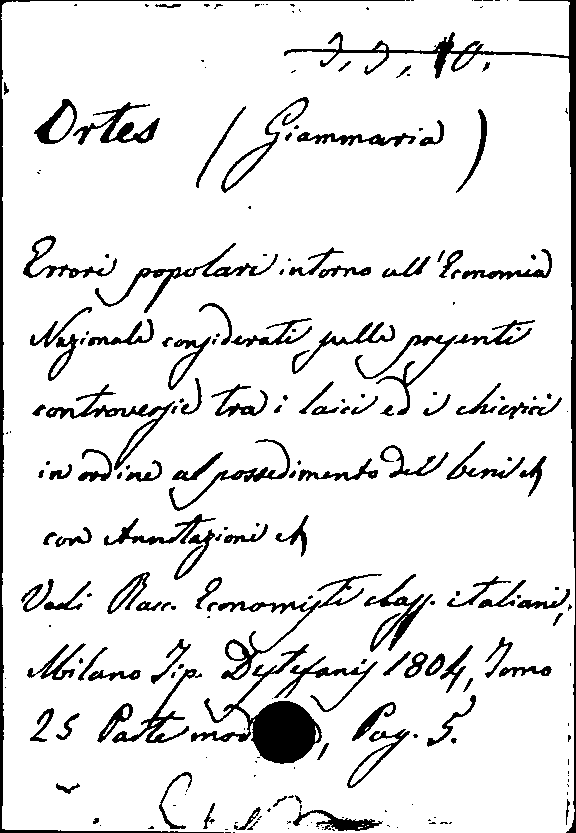 3, 3, 10.
Ortes (Giammaria)
Errori popolari intorno all'Economia
Nazionale considerati sulle presenti
controversie tra i laici ed i chierici
in ordine al possedimento dei beni
con Annotazioni
Vedi Racc. Economisti class. italiani,
Milano Tip. Destefanis 1804, Tomo
25 Parte mod, Pag. 5.